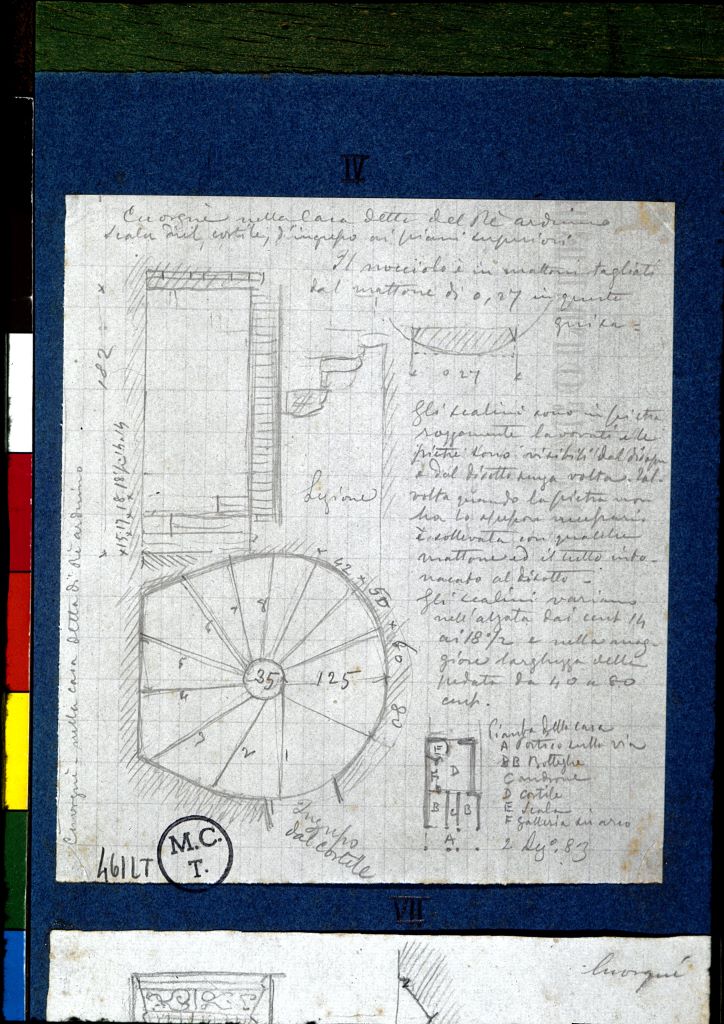 IV
Cuorgnè nella Casa detta del Rè arduino
Scala nel cortile, d'ingresso ai piani superiori
Il nocciolo è in mattoni tagliati
dal mattone di 0,27 in questa
guisa =
0 27
182
15,17,18
Gli scalini sono in pietra
rozzamente lavorati e le
pietre sono visibili dal disopra
e dal disotto senza volta. Tal
volta quando la pietra non
ha lo spessore necessario
è sollevata con qualche
mattone ed il tutto into-
nacato al disotto -
Gli scalini variano
nell'alzata dai cent 14
ai 18 1/2 e nella mag
giore larghezza della
pedata da 40 a 80
cent.
42 x 50 x 60
80
35
125
1
2
3
4
5
6
7
8
Ingresso
dal cortile
Pianta della casa
A Portico sulla via
BB Botteghe
C androne
D cortile
E Scala
F galleria su arco
E
D
F
B
C
B
A
83
Cuorgnè - nella casa detta di Rè arduino
461LT
M.C.
T.
VII
2
Cuorgnè